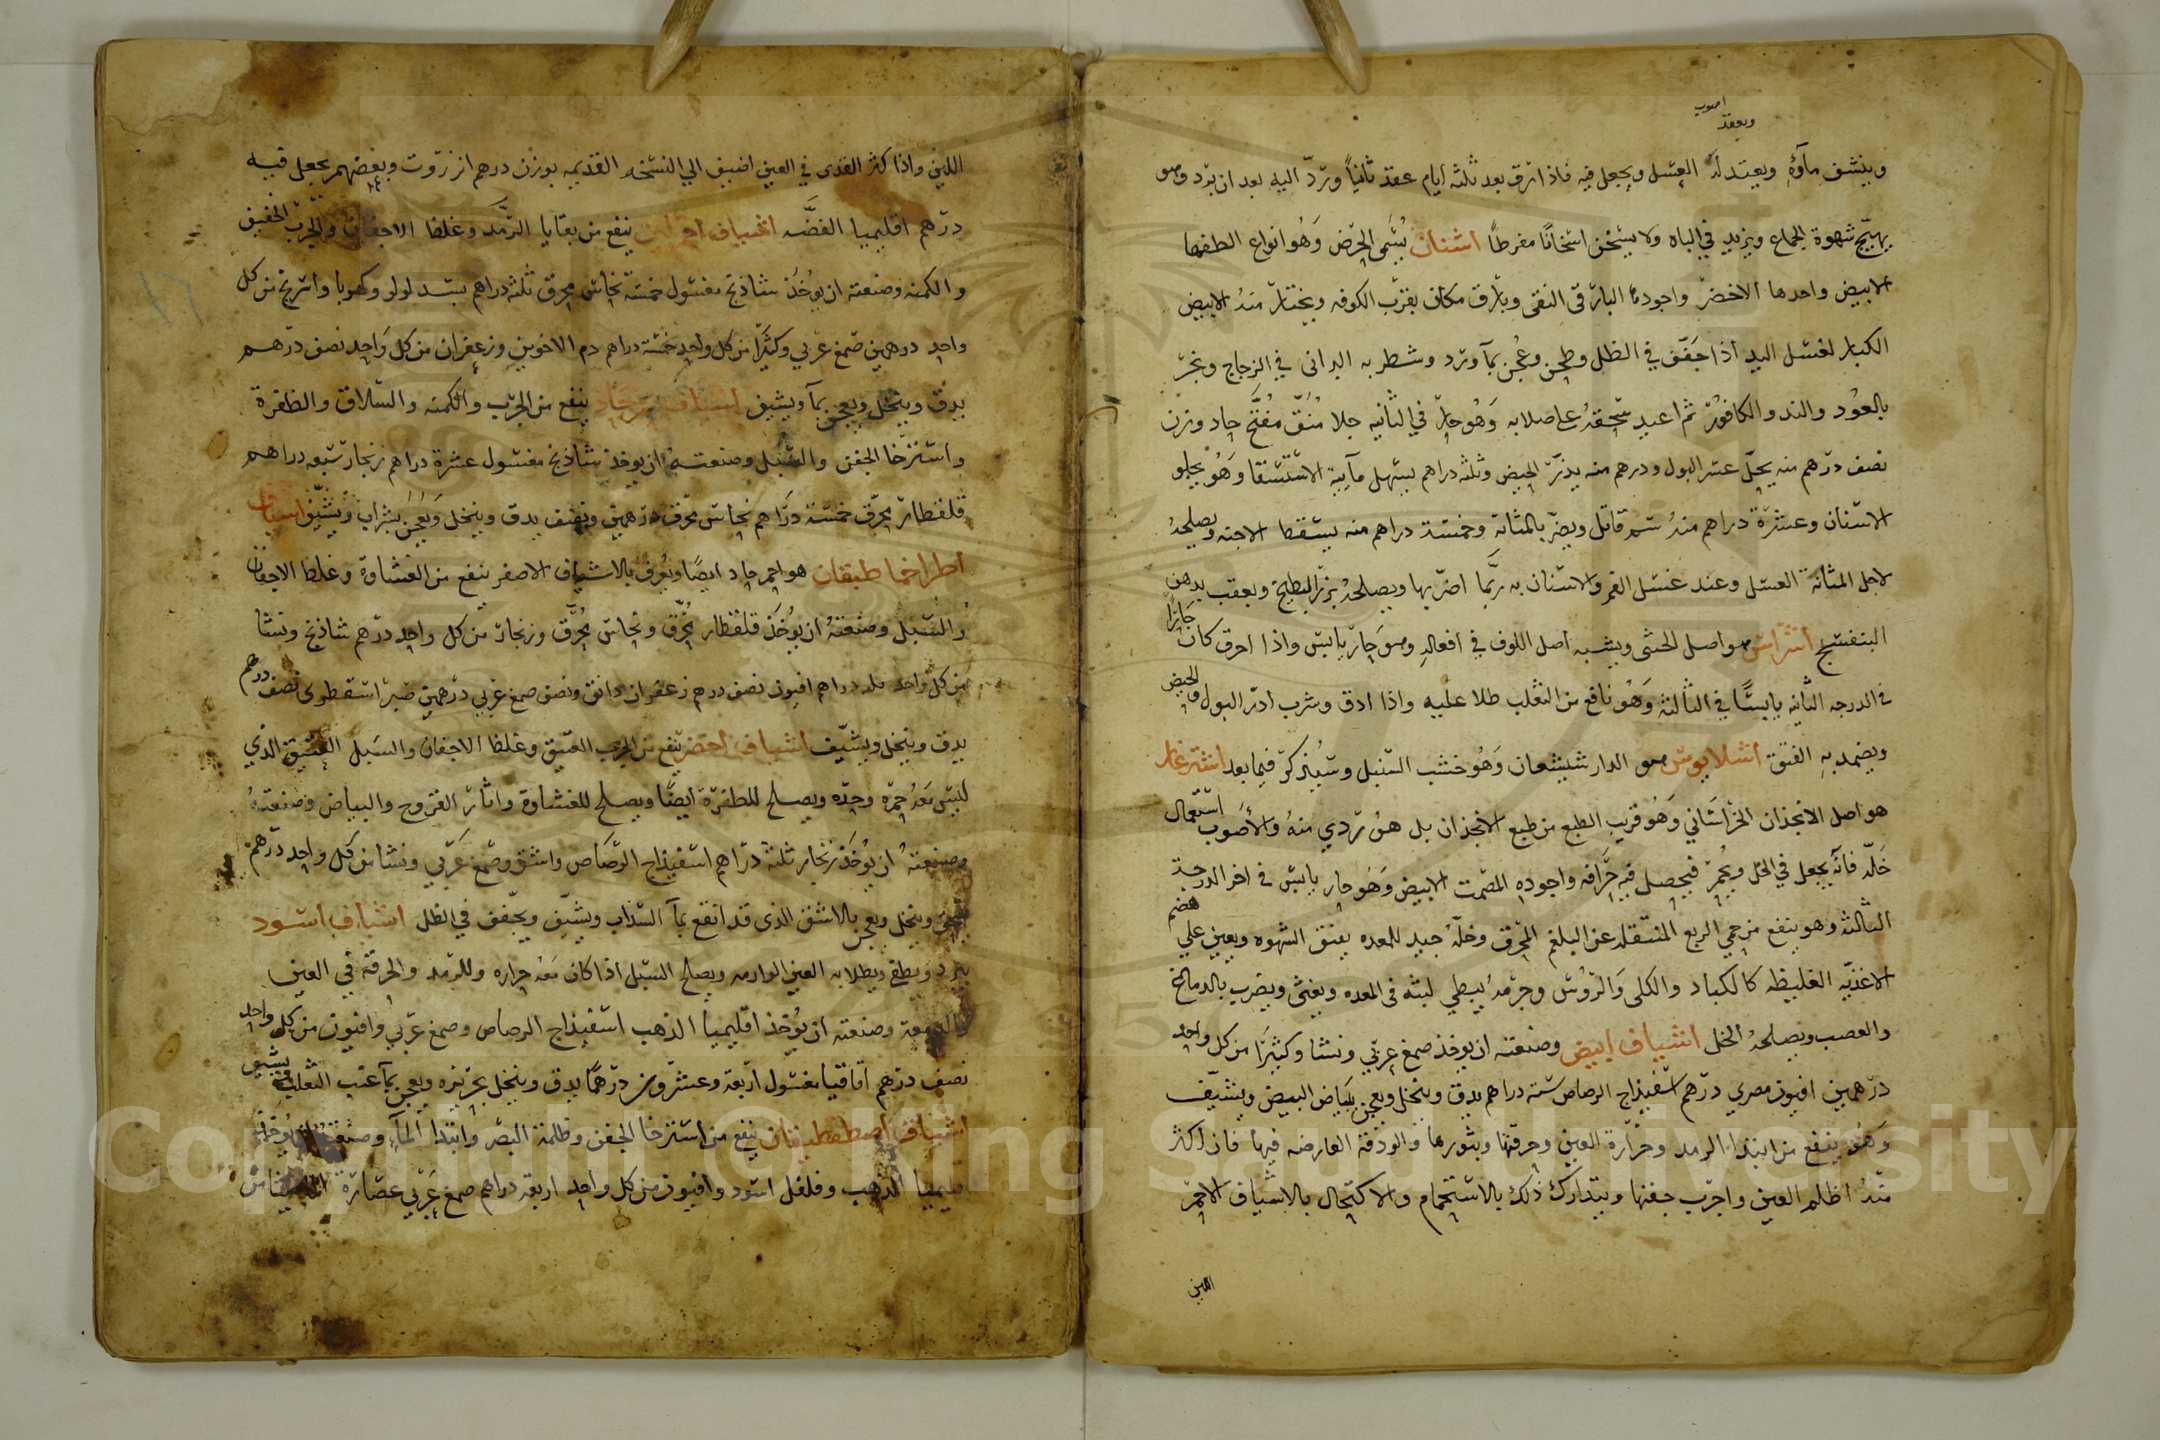 اصوب
ويعقد
وينشف مآؤه ويعتد له العسل ويجعل فيه فاذا رق بعد ثلثة ايام عقد ثانياً وردّ اليه بعد ان برد وهو
يهيّج شهوة الجماع ويزيد في الباه ولا يسخن اسخانًا مفرطاً اشنان يسمى الحرض وهو انواع الطفها
الابيض واحدها الاخضر واجوده البارقي النقي وبارق مكان بقرب الكوفه ويختار منه الابيض
الكبار لغسل اليد اذا جفف في الظل وطحن وعجن بمآ ورد وشطر به البراني في الزجاج وبخر
بالعود والند والكافور ثم اعيد سحقه على صلابه وهو حار في الثانيه جلا منق مفتح حاد وزن
نصف درهم منه يحل عسر البول ودرهم منه يدر الحيض وثلثه دراهم يسهل مآيية الاستسقا وهو يجلو
الاسنان وعشرة دراهم منه سم قاتل ويضر بالمثانة وخمسة دراهم منه يسقط الاجنه ويصلحه
لاجل المثانة العسل وعند غسل الفم والاسنان به ربما اضر بها ويصلحه بزر البطيخ ويعقب بدهن
البنفسج اشراس هو اصل الخنثى ويشبه اصل اللوف في افعاله وهو حار يابس واذا احرق كان حارا
في الدرجه الثانيه يابسًا في الثالثه وهو نافع من الثعلب طلا عليه واذا ادق وشرب ادر البول والحيض
ويضمد به الفتق اشلابوس هو الدارشيشعان وهو خشب السنبل وسيذكر فيما بعد اشترغار
هو اصل الانجذان الخراساني وهو قريب الطبع من طبع الانجذان بل هو ردي منه والاصوب استعمال
خله فانه يجعل في الخل ويخمر فيحصل فيه حرافه واجوده المصمت الابيض وهو حار يابس في اخر الدرجة
الثالثه وهو ينفع من حمي الربع المنتقله عن البلغم المحرق وخله جيد للمعده يفتق الشهوه ويعين علي هضم
الاغذيه الغليظه كالكباد والكلى والروس وجرمه يبطي لبثه في المعده ويغثى ويضر بالدماغ
والعصب ويصلحه الخل اشياف ابيض وصنعته ان يوخذ صمغ عربي ونشا وكثيرا من كل واحد
درهمين افيون مصري درهم اسفيذاج الرصاص سته دراهم يدق وينخل ويعجن ببياض البيض ويشيف
وهو ينفع من ابتدا الرمد وحرارة العين وحرقتها وبثورها والودقة العارضه فيها فان اكثر
منه اظلم العين واجرب جفنها ويتدارك ذلك بالاستحمام والاكتحال بالاشياف الاحمر
اللين
اللين واذا كثر القذى في العين اضيف الي النسخه القديمه بوزن درهم انزروت وبعضهم يجعل فيه
درهم اقليميا الفضه اشياف احمر لين ينفع من بقايا الرمد وغلظ الاجفان والجرب الخفيف
والكمنه وصنعته ان يوخذ شاذنج مغسول خمسة نحاس محرق ثلثه دراهم بسد لولو وكهربا واسرنج من كل
واحد درهمين صمغ عربي وكثيرا من كل واحد خمسة دراهم دم الاخوين وزعفران من كل واحد نصف درهم
يدق وينخل ويعجن بمآ ويشيف اشياف احمر حاد ينفع من الجرب والكمنه والسلاق والظفرة
واسترخا الجفن والسبل وصنعته ان يوخذ شاذنج مغسول عشرة دراهم زنجار سبعه دراهم
قلقطار محرق خمسة دراهم نحاس محرق درهمين ونصف يدق وينخل ويعجن بشراب ويشيف اشياف
اطراخماطيقان هو احمر حاد ايضا ويعرف بالاشياف الاصفر ينفع من الغشاوة وغلظ الاجفان
والسبل وصنعته ان يوخذ قلقطار محرق ونحاس محرق وزنجار من كل واحد درهم شاذنج ونشا
من كل واحد دراهم افيون نصف درهم زعفران دانق ونصف صمغ عربي درهمين صبر اسقطوى نصف درهم
يدق وينخل ويشيف اشياف اخضر ينفع من الجرب العتيق وغلظ الاجفان والسبل العتيق الذي
ليس معه حمره وحده ويصلح للظفرة ايضا ويصلح للغشاوة واثار القروح والبياض وصنعته
وصنعته ان يوخذ زنجار ثلثة دراهم اسفيذاج الرصاص واشق وصمغ عربي ونشا من كل واحد درهم
وينخل ويعجن بالاشق الذي قد انقع بمآ السذاب ويشيف ويجفف في الظل اشياف اسود
يبرد ويطفي ويطلا به العين الوارمه ويصلح السبل اذا كان معه حراره وللرمد والحرقة في العين
والدمعة وصنعته ان يوخذ اقليميا الذهب اسفيذاج الرصاص وصمغ عربي وافيون من كل واحد
نصف درهم اقاقيا مغسول اربعة وعشرون درهمًا يدق وينخل بحريره ويعجن بمآ عنب الثعلب ويشيف
اشياف اصطفطيقان ينفع من استرخا الجفن وظلمة البصر وابتدا المآ وصنعته ان يوخذ
اقليميا الذهب وفلفل اسود وافيون من كل واحد اربعة دراهم صمغ عربي عصارة من
Copyright © King Saud University